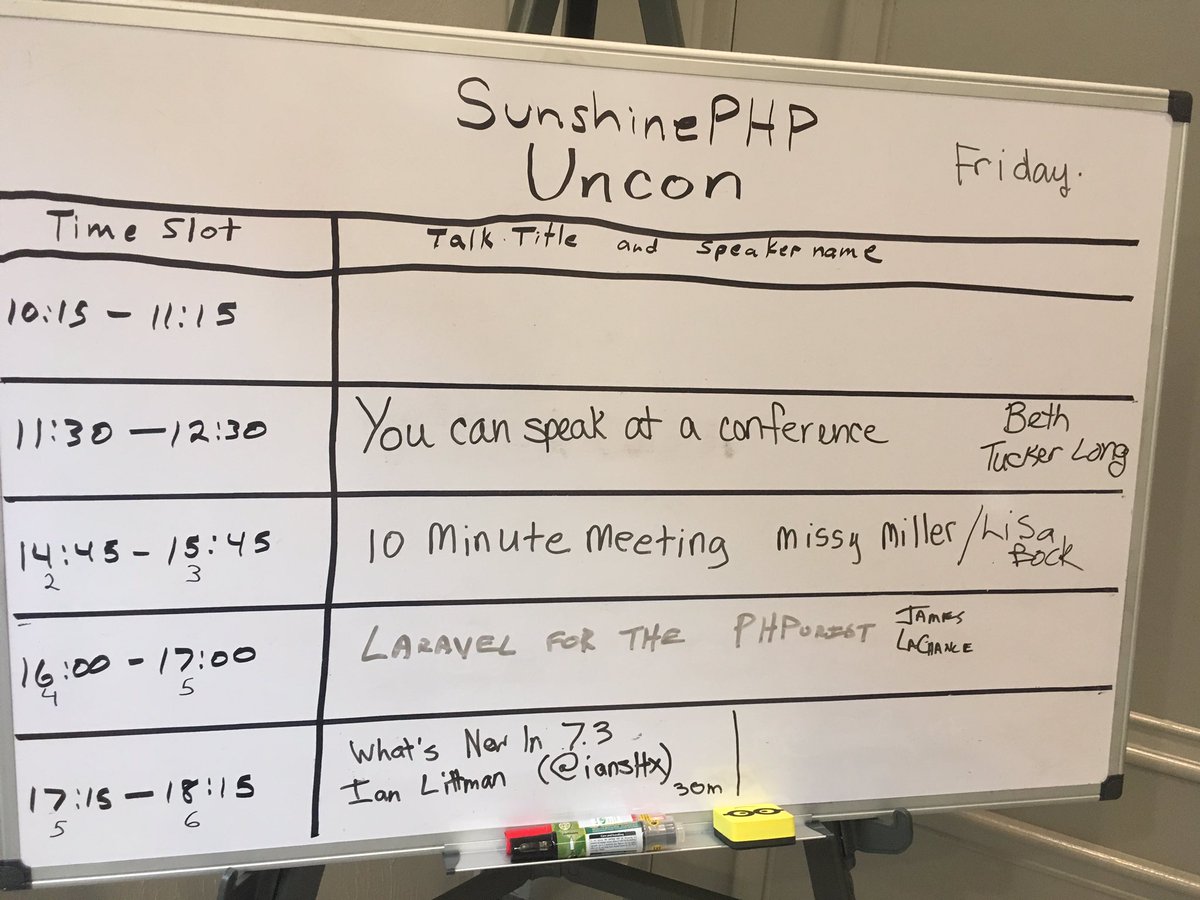 SunshinePHP
Uncon
Friday.
Time Slot
Talk Title and Speaker name
10:15 - 11:15
11:30 - 12:30
You can speak at a conference
Beth
Tucker Long
14:45 - 15:45
2 3
10 Minute Meeting missy miller/Lisa
Bock
16:00 - 17:00
4 5
LARAVEL FOR THE PHPurist
JAMES
LACHANCE
17:15 - 18:15
5 6
What's New In 7.3
Ian Littman (@iansltx)
30m